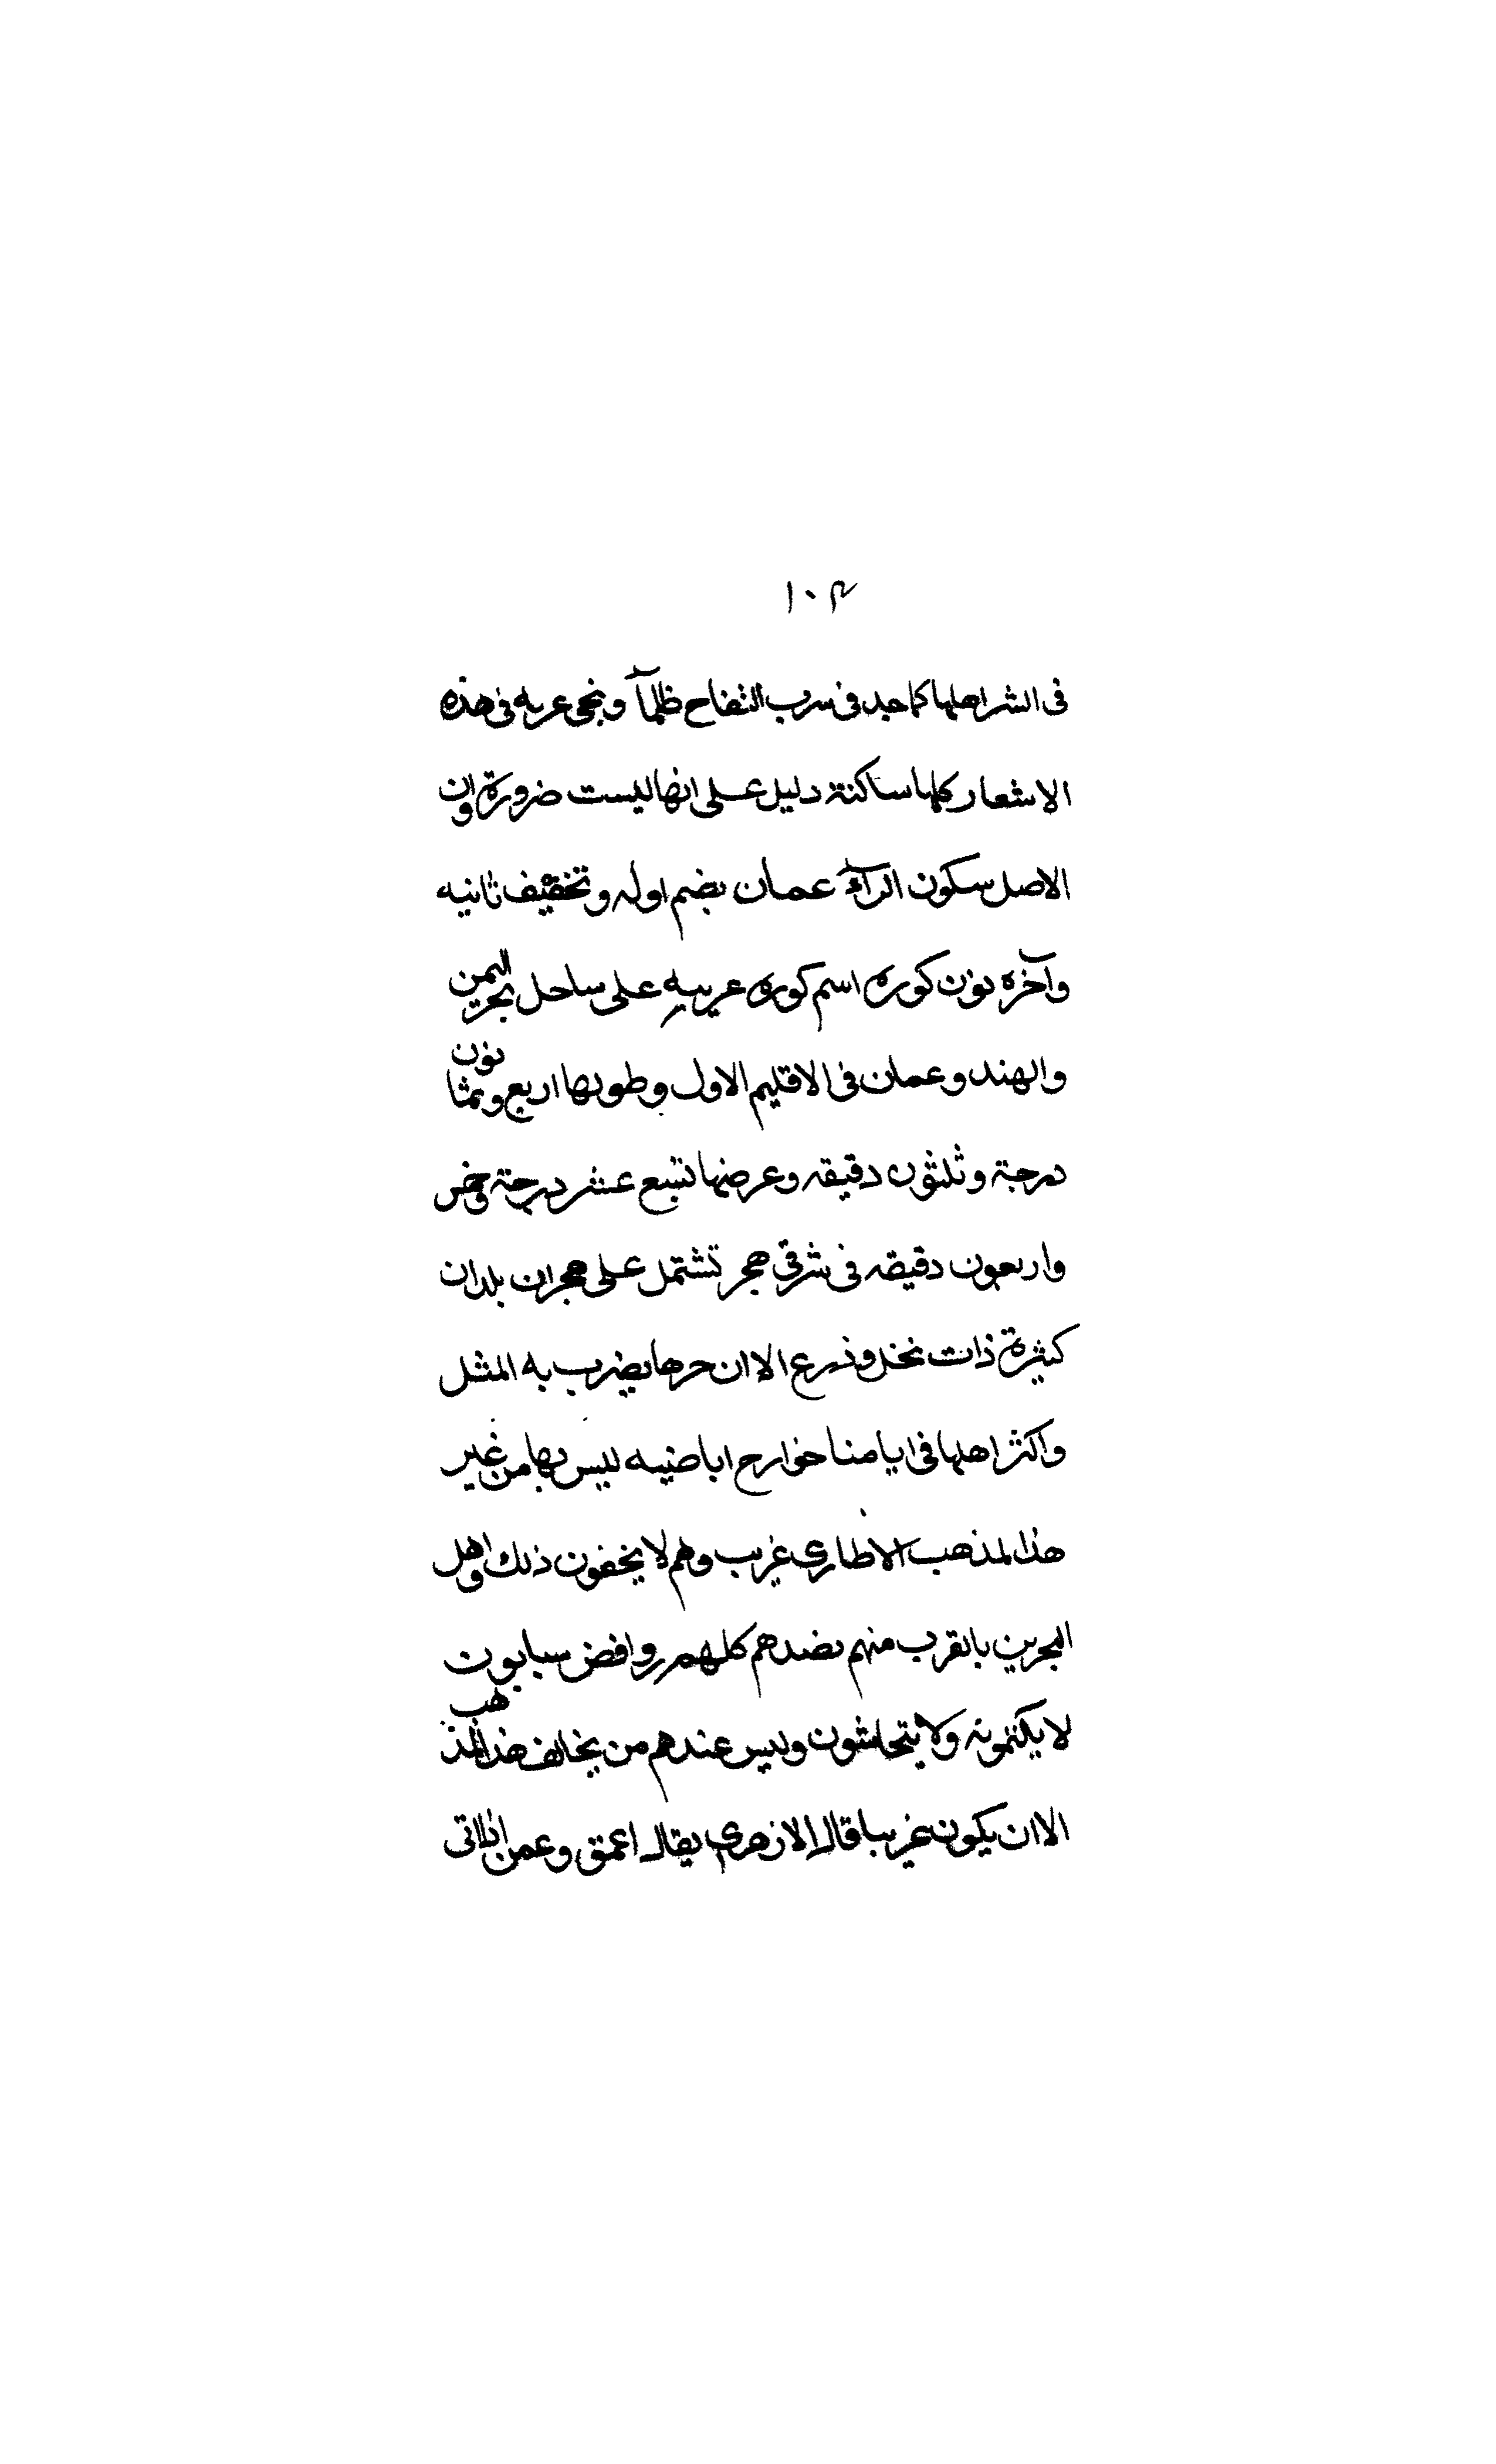 ١٠٣
فى الشر اهلها كما جد فى سرب التفاح ظلمآ ونجى عربه فى هذه
الاشعار كلها ساكنة دليل على انها ليست ضرورة وان
الاصل سكون الرآء عمان بضم اوله وتخفيف ثانيه
وآخره نون كوره اسم كوره عربيه على ساحل بحر اليمن
والهند وعمان فى الاقليم الاول وطولها اربع وثمانون
درجة وثلثون دقيقه وعرضها تسع عشر درجة وخمس
واربعون دقيقه فى شرقى هجر تشتمل على هجران بلدان
كثيرة ذات نخل وذرع الا ان حرها يضرب به المثل
واكثر اهلها فى ايامنا خوارج اباضيه ليس بها من غير
هذا لمذهب الا طارى غريب وهم لا يخفون ذلك واهل
البحرين بالقرب منهم بضدهم كلهم روافض سبابون
لا يكتمونه ولا يتحاشون وليس عندهم من يخالف هذا المذهب
الا ان يكون غريبا قال الازهرى يقال اعمق وعمن اذا اتى